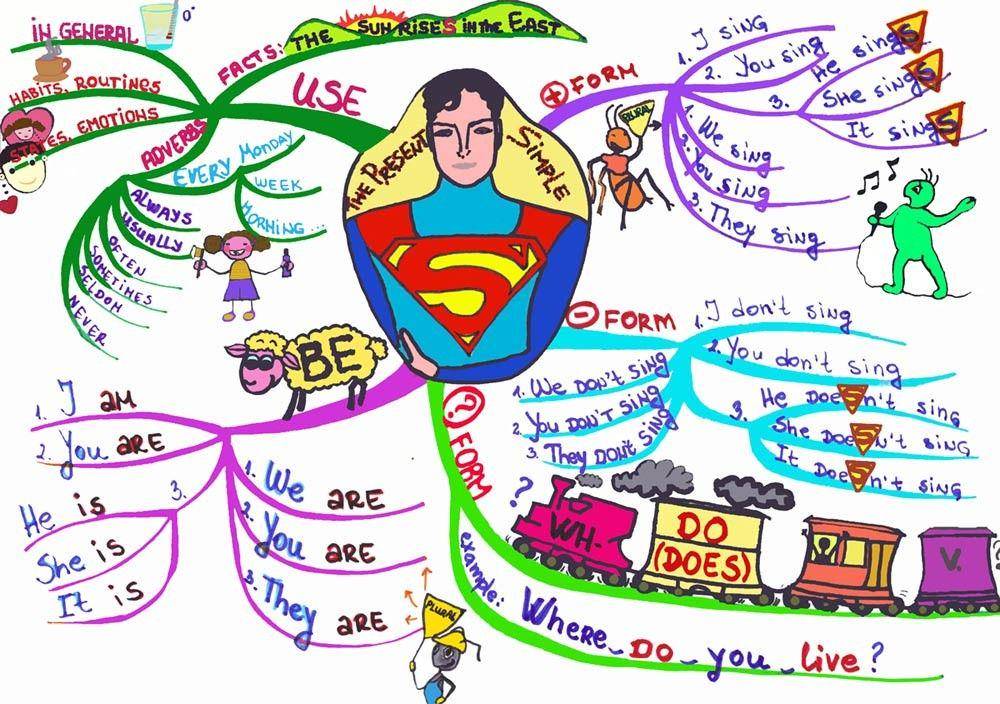 THE PRESENT
SIMPLE
S
USE
IN GENERAL
HABITS, ROUTINES
STATES, EMOTIONS
FACTS: THE SUN RISES IN THE EAST
ADVERBS
EVERY MONDAY
WEEK
MORNING...
ALWAYS
USUALLY
OFTEN
SOMETIMES
SELDOM
NEVER
+ FORM
1. I SING
2. You sing
3.
He singS
She singS
It singS
PLURAL
1. We sing
2. You sing
3. They sing
- FORM
1. I don't sing
2. You don't sing
3.
He DoeSn't sing
She DoeSN't sing
It DoeSn't sing
1. We DON'T SING
2. You DON'T SING
3. They DON'T SING
BE
1. I AM
2. You ARE
3.
He is
She is
It is
1. We ARE
2. You ARE
3. They ARE
PLURAL
? FORM
?
WH-
DO
(DOES)
V.
?
example:
Where DO you live?